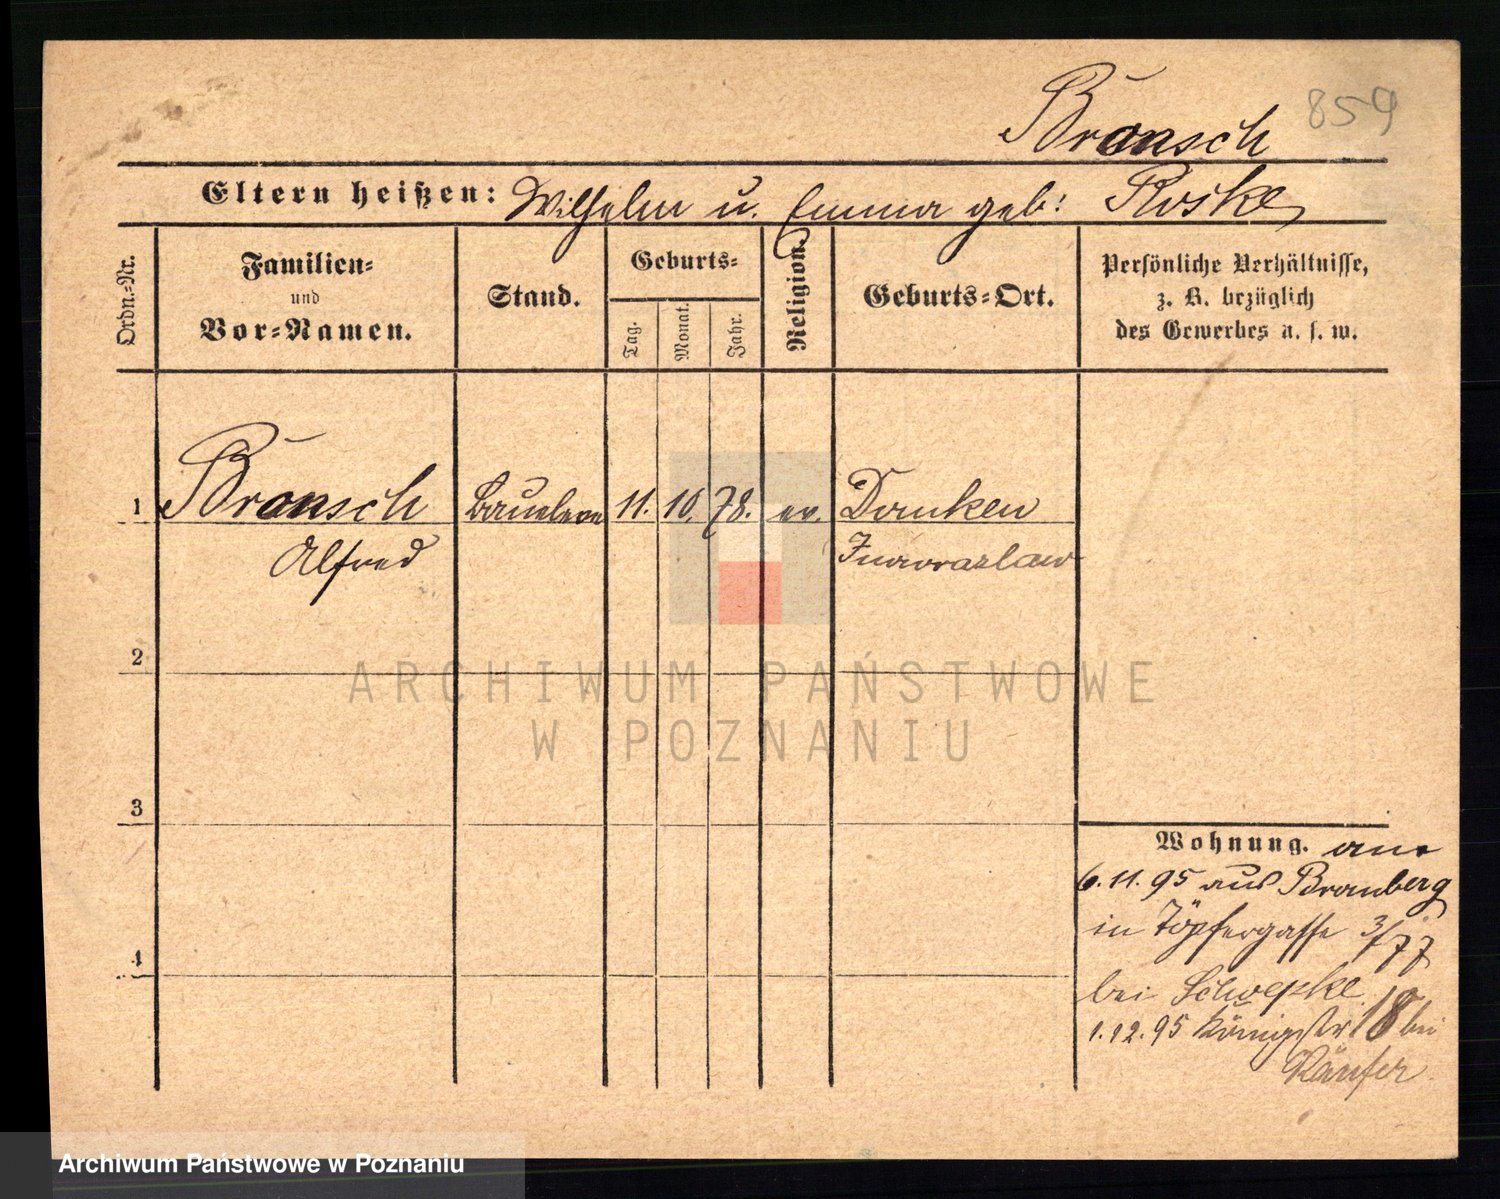 859
Bransch
Eltern heißen: Wilhelm u. Emma geb: Roske
Ordn.=Nr.
Familien=
und
Vor=Namen.
Stand.
Geburts=
Tag.
Monat.
Jahr.
Religion.
Geburts=Ort.
Persönliche Verhältnisse,
z. B. bezüglich
des Gewerbes u. s. w.
1 Bransch Baueleve 11. 10. 78. ev. Danken
Alfred Inowrazlaw
2
3
4
Wohnung. am
6.11.95 aus Bromberg
in Töpfergasse 3/
bei
1.12.95 Königstr 18 bei
ARCHIWUM PAŃSTWOWE
W POZNANIU
Archiwum Państwowe w Poznaniu